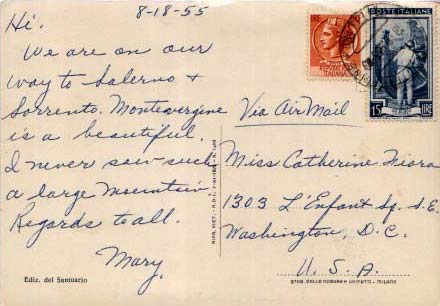 8-18-55
Hi.
We are on our
way to Salerno +
Sorrento. Montevergine
is a beautiful.
I never saw such
a large mountain
Regards to all.
Mary.
Ediz. del Santuario
POSTE ITALIANE
15 LIRE
Via Air Mail
Miss Catherine Fiora
1303 L'Enfant Sq. S.E.
Washington, D.C.
U.S.A.